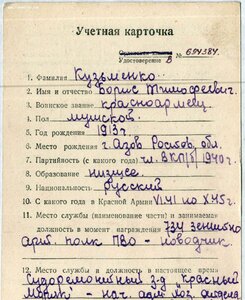 Учетная карточка
Удостоверения № 694384.
В
1. Фамилия Кузьменко
2. Имя и отчество Борис Тимофеевич.
3. Воинское звание красноармеец
4. Пол мужской
5. Год рождения 1913 г.
6. Место рождения г. Азов Ростов. обл.
7. Партийность (с какого года) чл. ВКП/б/ 1940 г.
8. Образование низшее
9. Национальность русский
10. С какого года в Красной Армии VI.41 по X.45 г.
11. Место службы (наименование части) и занимаемая
должность в момент награждения 734 зенитно
арт. полк ПВО - наводчик.
12. Место службы и должность в настоящее время
Судоремонтный з-д "Красный
Моряк" - нач. адм. хоз. отдела